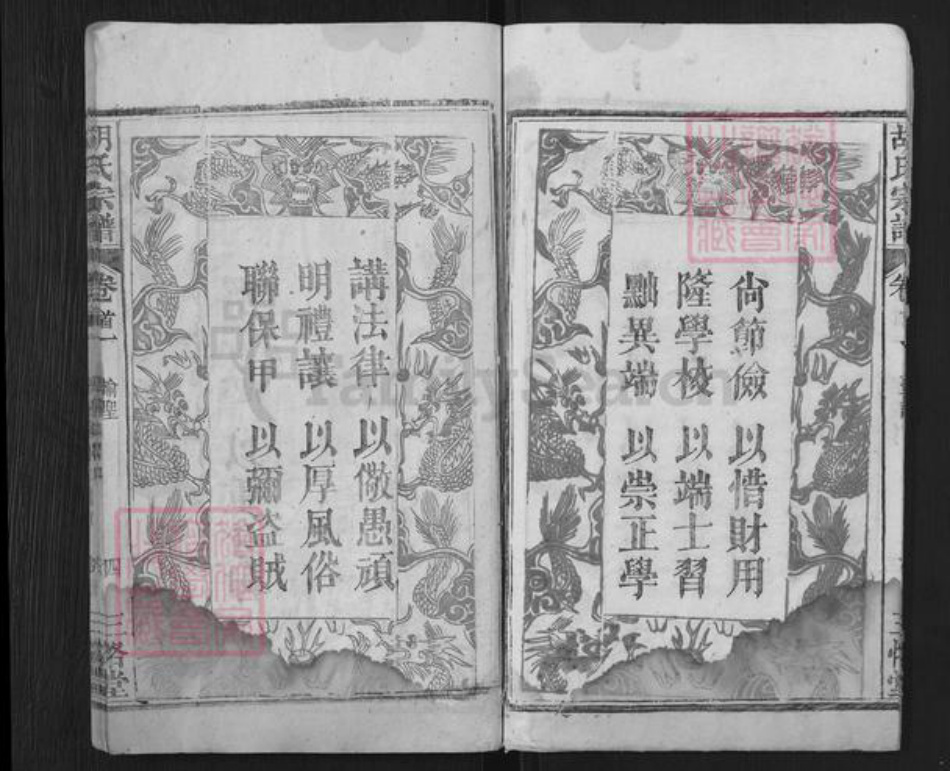 尚節儉 以惜財用
隆學校 以端士習
黜異端 以崇正學
講法律 以儆愚頑
明禮讓 以厚風俗
聯保甲 以彌盜賊
胡氏宗譜
卷首一
諭聖
四
三恪堂
胡氏宗譜
卷
FamilySearch